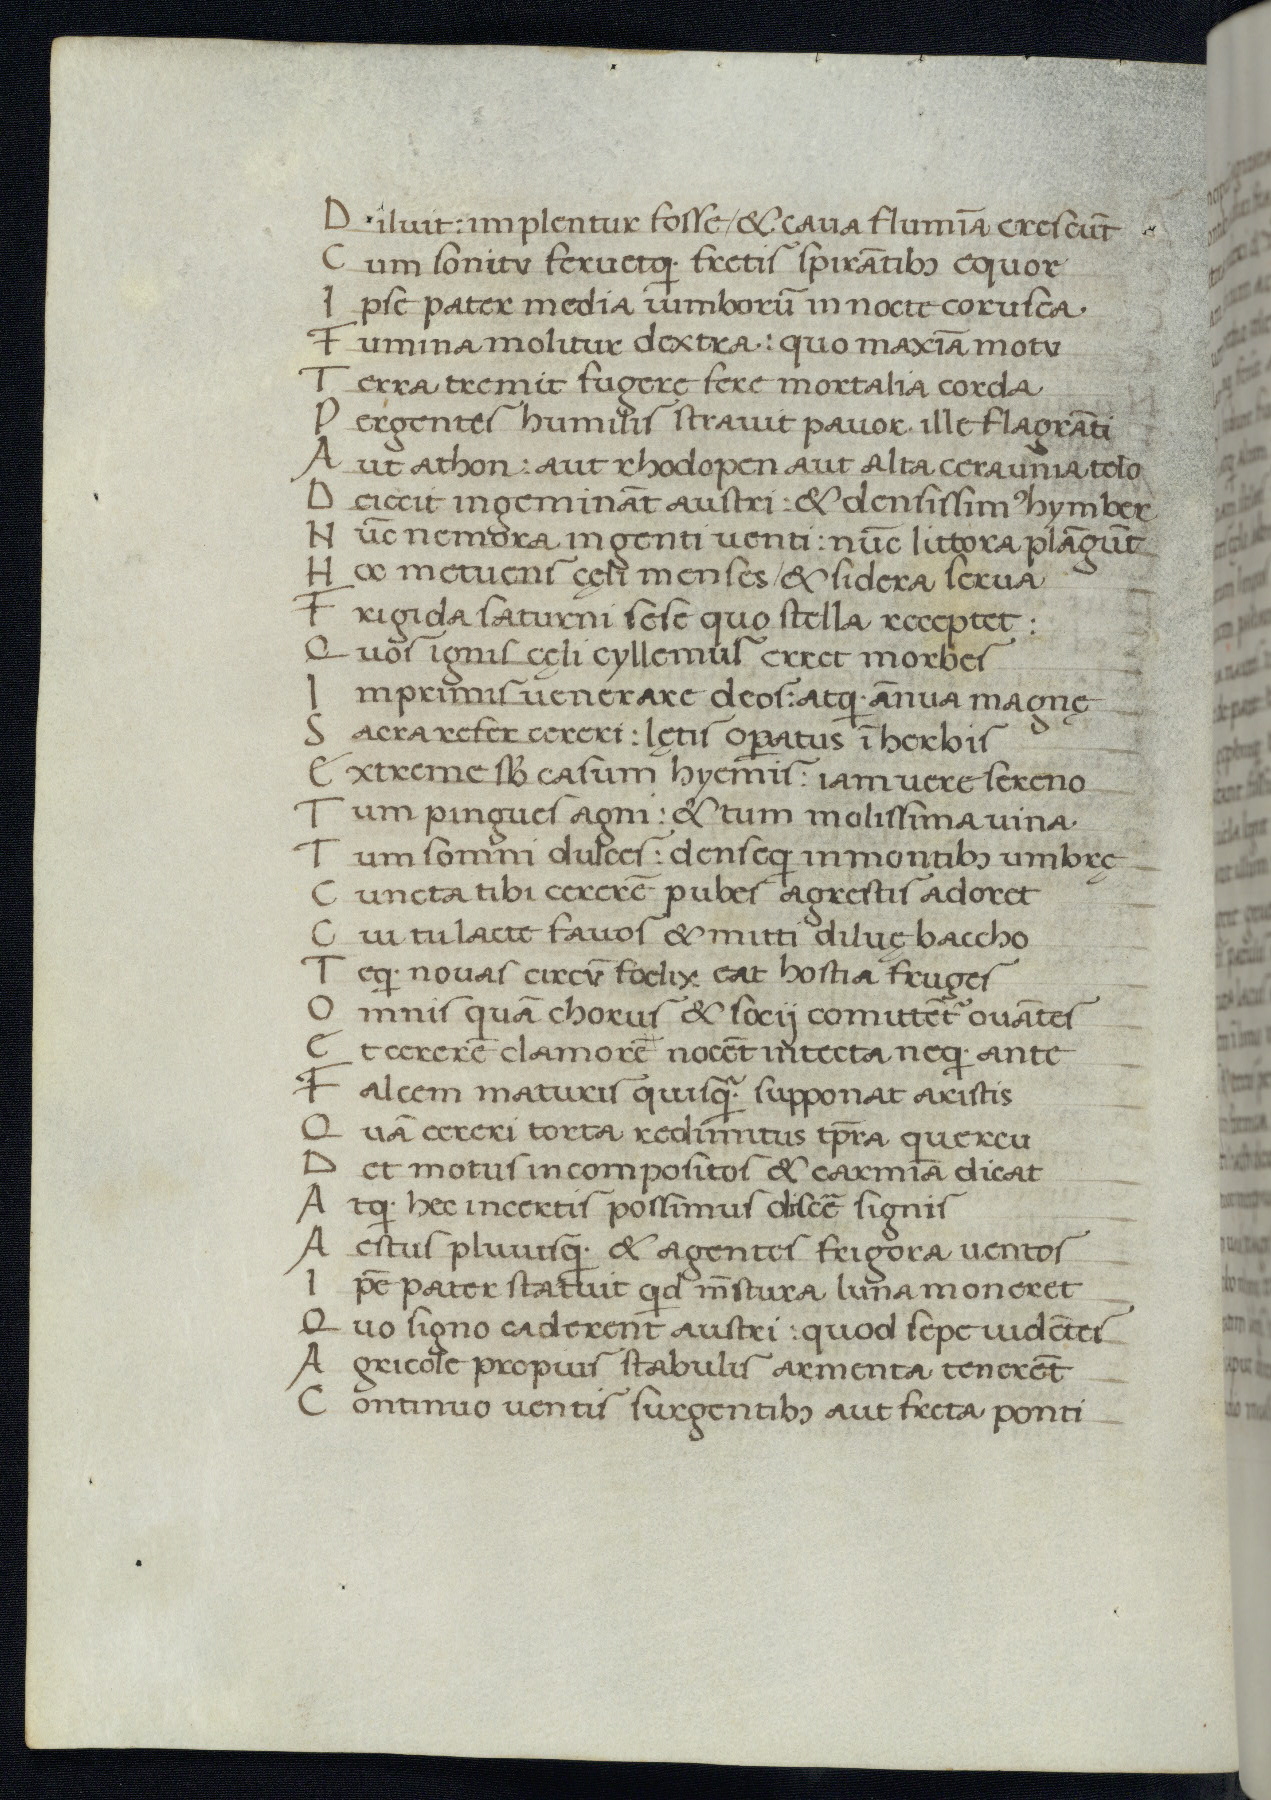 D iluit: implentur fosse / & caua flumīa crescūt
C um sonitu feruetq; fretis spirātibꝫ equor
I pse pater media nimborū in nocte corusca.
F umina molitur dextra: quo maxīa motu
T erra tremit fugere fere mortalia corda
P ergentes humilis strauit pauor. ille flagrāti
A ut athon: aut rhodopen aut alta ceraunia telo
D eiecit ingemināt austri: & densissimꝰ hymber
N ūc nemora ingenti uenti: nūc littora plāgūt
H oc metuens cęli menses / & sidera serua
F rigida saturni sese quo stella receptet:
Q uos ignis cęli cyllenius erret in orbes
I nprimis uenerare deos: atq; ānua magnę
S acra refer cereri: lętis operatus ī herbis
E xtreme sb casum hyemis: iam uere sereno
T um pingues agni: & tum molissima uina.
T um somni dulces: denseq; in montibꝫ umbrę
C uncta tibi cererē pubes agrestis adoret
C ui tu lacte fauos & mitti diluę baccho
T eq; nouas circū foelix eat hostia fruges
O mnis quā chorus & socij comittēt ouātes
E t cererē clamorē nocēt in tecta neq; ante
F alcem maturis quisq̄; supponat aristis
Q uā cereri torta redimitus tp̄ra quercu
D et motus incompositos & carmīa dicat
A tq; hec incertis possimus discē signis
A estus pluuisq; & agentes frigora uentos
I pē pater statuit qd m̄stura luna moneret
Q uo signo caderent austri: quod sepe uidētes
A gricole propius stabulis armenta tenerēt
C ontinuo uentis surgentibꝫ aut freta ponti